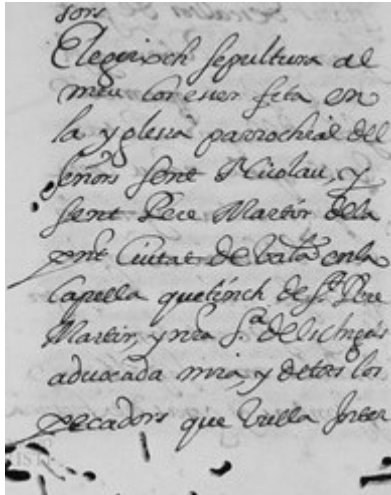 sons
Elegeixch sepultura al
meu cos esser feta en
la yglesia parrochial del
señors sent Nicolau, y
sent Pere Martir dela
pnt Ciutat de Vala enla
Capella quetinch de St Pere
Martir, y nra Sª dels
aduocada mia, y detots los
pecadors que vulla